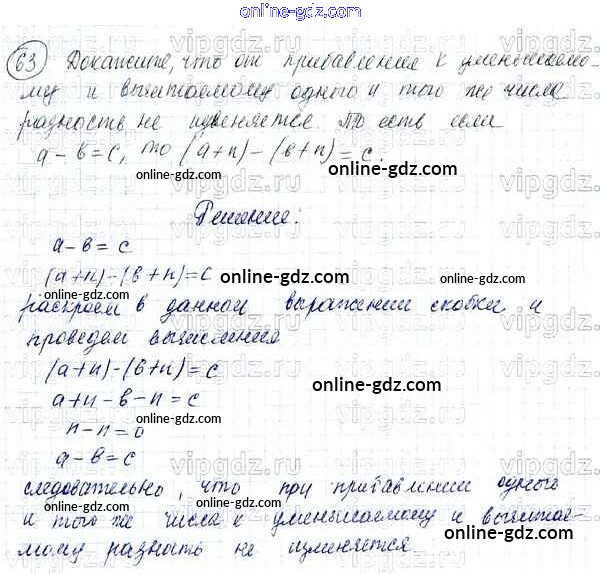 online-gdz.com
63 Докажите, что от прибавления к уменьшаемо-
му и вычитаемому одного и того же числа
разность не изменяется. То есть если
а - в = с, то (а+n) - (в+n) = с.
online-gdz.com
online-gdz.com
Решение:
а - в = с
(а+n) - (в+n) = с online-gdz.com
раскроем в данном выражении скобки и
online-gdz.com
проведем вычисления
(а+n) - (в+n) = с
online-gdz.com
а + n - в - n = с
online-gdz.com
n - n = 0
а - в = с
online-gdz.com
следовательно, что при прибавлении одного
и того же числа к уменьшаемому и вычитае-
мому разность не изменяется.